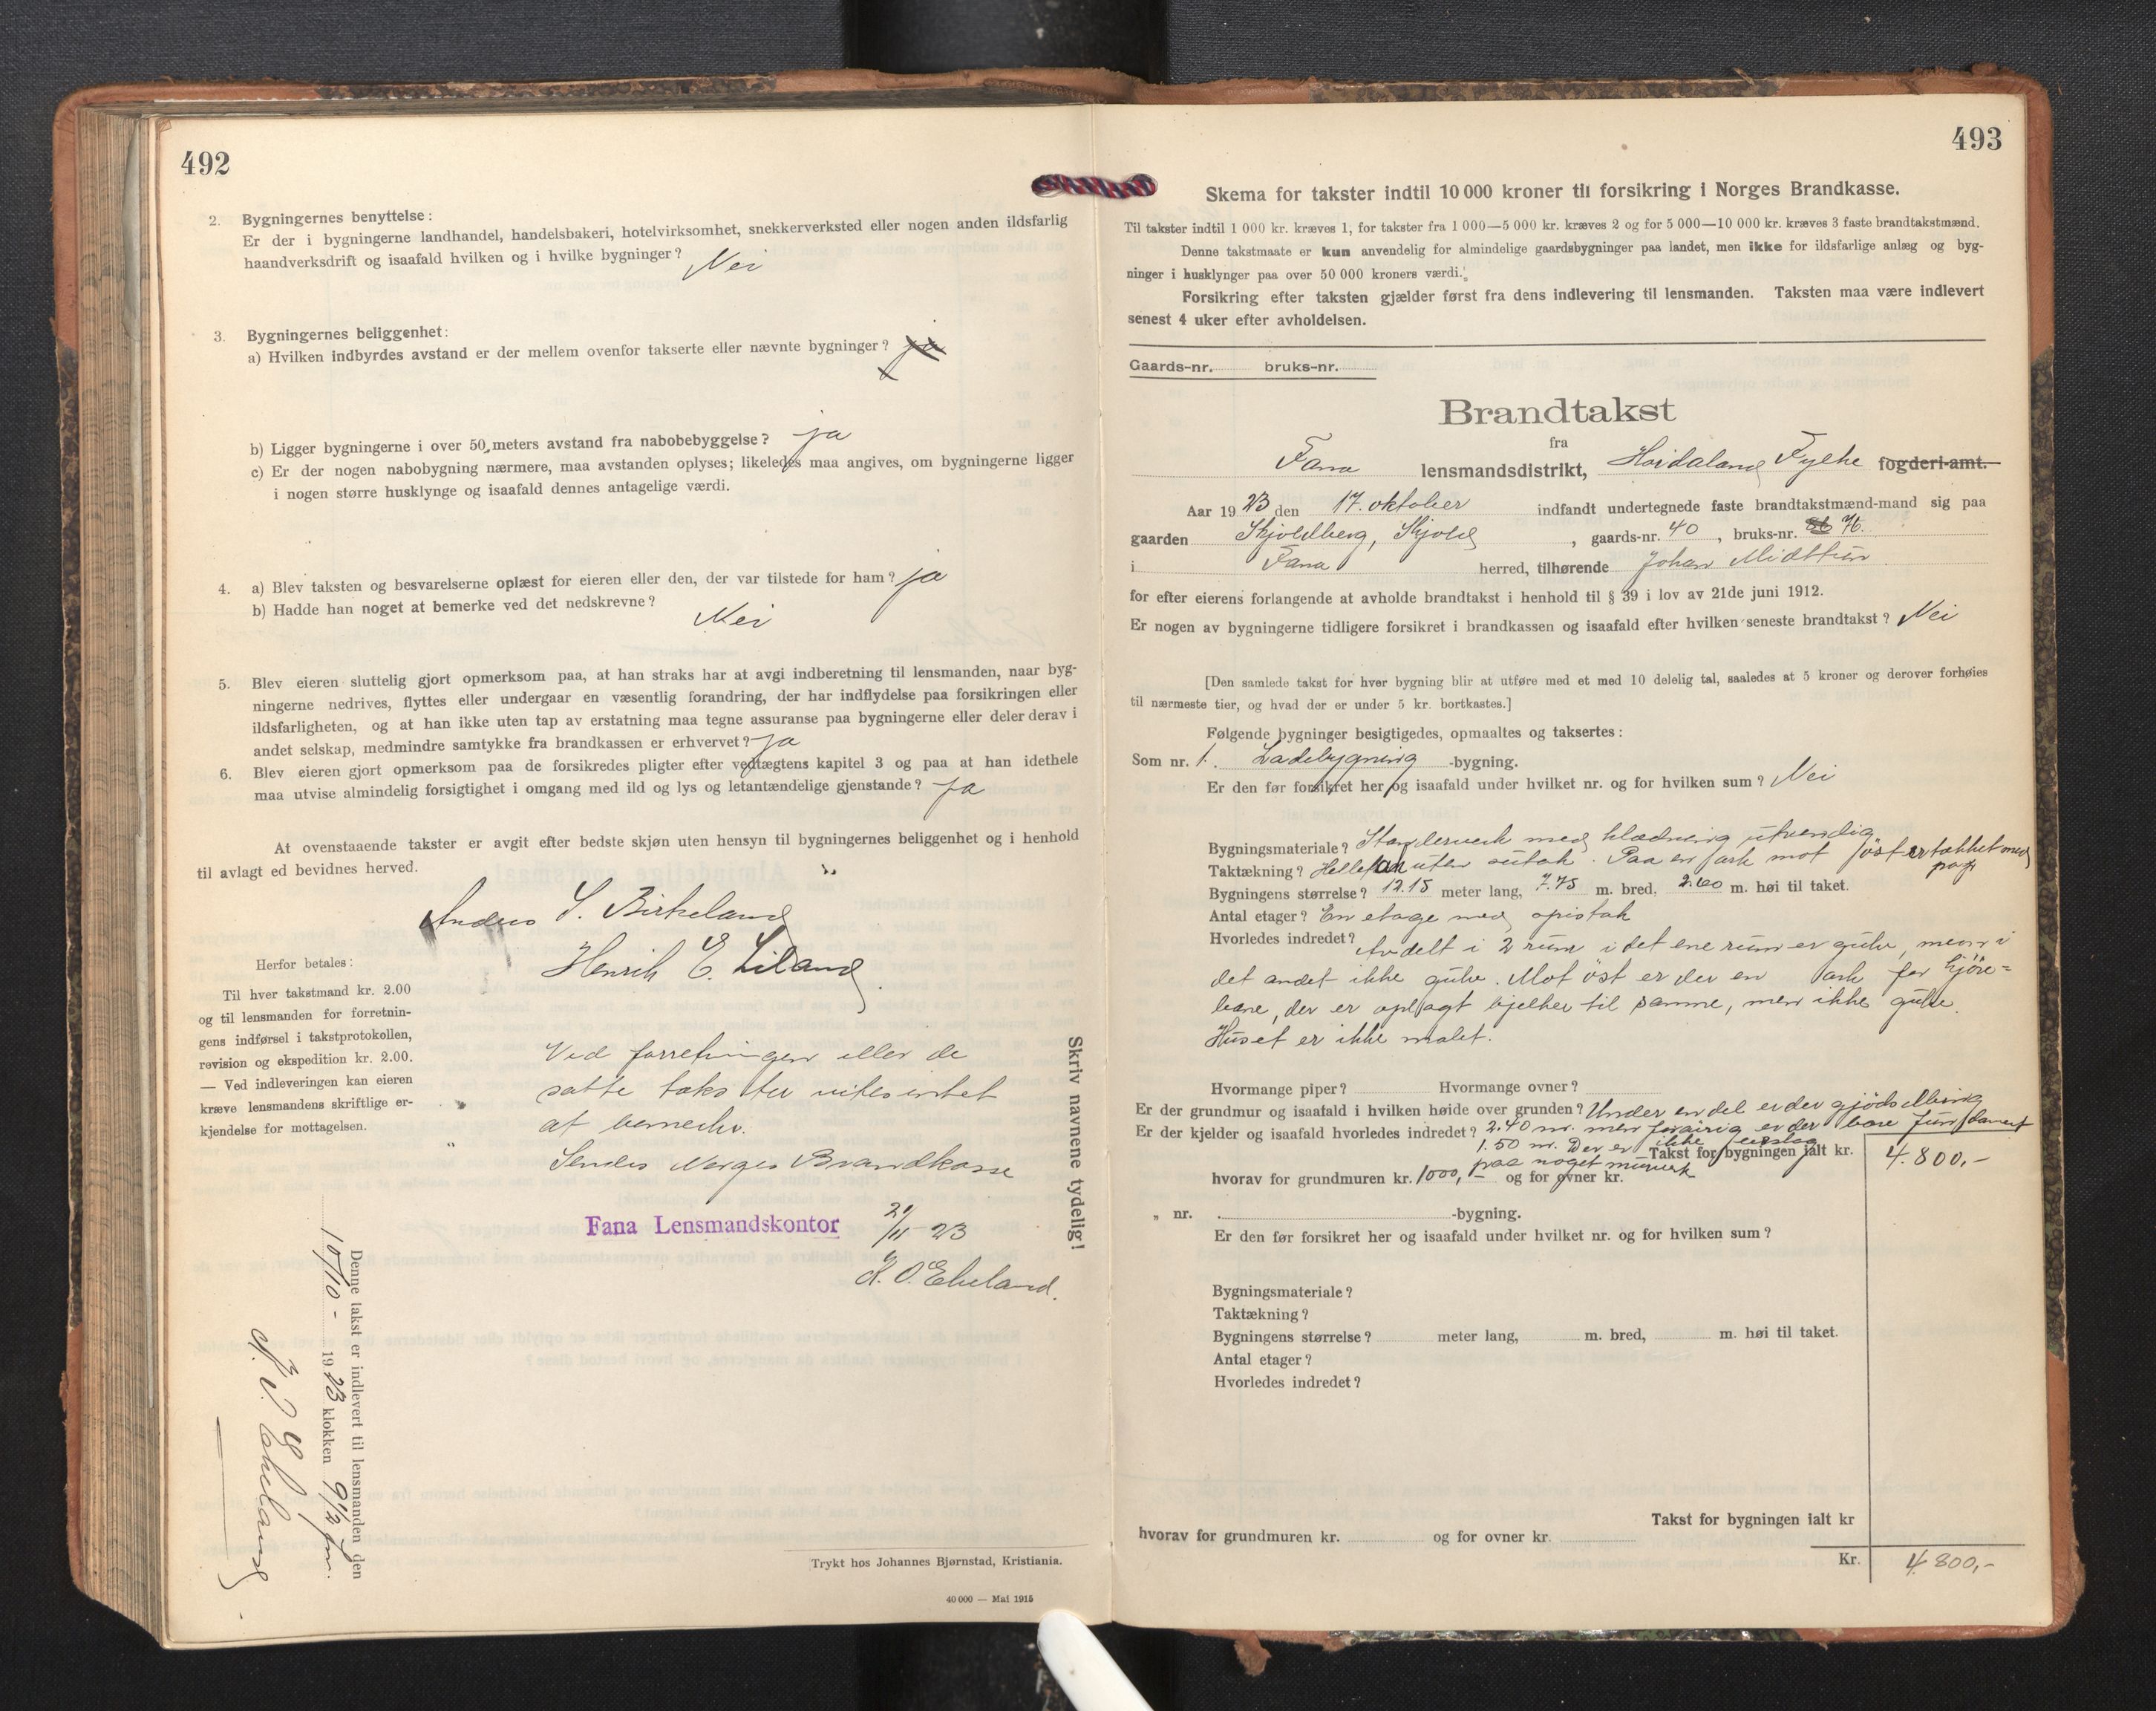 492
2. Bygningernes benyttelse:
Er der i bygningerne landhandel, handelsbakeri, hotelvirksomhet, snekkerverksted eller nogen anden ildsfarlig
haandverksdrift og isaafald hvilken og i hvilke bygninger? Nei
3. Bygningernes beliggenhet:
a) Hvilken indbyrdes avstand er der mellem ovenfor takserte eller nævnte bygninger? ja
b) Ligger bygningerne i over 50 meters avstand fra nabobebyggelse? ja
c) Er der nogen nabobygning nærmere, maa avstanden oplyses; likeledes maa angives, om bygningerne ligger
i nogen større husklynge og isaafald dennes antagelige værdi.
4. a) Blev taksten og besvarelserne oplæst for eieren eller den, der var tilstede for ham? ja
b) Hadde han noget at bemerke ved det nedskrevne? Nei
5. Blev eieren sluttelig gjort opmerksom paa, at han straks har at avgi indberetning til lensmanden, naar byg-
ningerne nedrives, flyttes eller undergaar en væsentlig forandring, der har indflydelse paa forsikringen eller
ildsfarligheten, og at han ikke uten tap av erstatning maa tegne assuranse paa bygningerne eller deler derav i
andet selskap, medmindre samtykke fra brandkassen er erhvervet? ja
6. Blev eieren gjort opmerksom paa de forsikredes pligter efter vedtægtens kapitel 3 og paa at han idethele
maa utvise almindelig forsigtighet i omgang med ild og lys og letantændelige gjenstande? ja
At ovenstaaende takster er avgit efter bedste skjøn uten hensyn til bygningernes beliggenhet og i henhold
til avlagt ed bevidnes herved.
Anders S. Birkeland
Henrik E. Liland.
Herfor betales:
Til hver takstmand kr. 2.00
og til lensmanden for forretnin-
gens indførsel i takstprotokollen,
revision og ekspedition kr. 2.00.
— Ved indleveringen kan eieren
kræve lensmandens skriftlige er-
kjendelse for mottagelsen.
Ved forretningen eller de
satte takster vites intet
at bemerke.
Sendes Norges Brandkasse
Fana Lensmandskontor 21/11 23
Skriv navnene tydelig!
Denne takst er indlevert til lensmanden den
1923 klokken 9½ fm.
Trykt hos Johannes Bjørnstad, Kristiania.
40 000 — Mai 1915
493
Skema for takster indtil 10 000 kroner til forsikring i Norges Brandkasse.
Til takster indtil 1 000 kr. kræves 1, for takster fra 1 000—5 000 kr. kræves 2 og for 5 000—10 000 kr. kræves 3 faste brandtakstmænd.
Denne takstmaate er kun anvendelig for almindelige gaardsbygninger paa landet, men ikke for ildsfarlige anlæg og byg-
ninger i husklynger paa over 50 000 kroners værdi.
Forsikring efter taksten gjælder først fra dens indlevering til lensmanden. Taksten maa være indlevert
senest 4 uker efter avholdelsen.
Gaards-nr. bruks-nr.
Brandtakst
fra
Fana lensmandsdistrikt, Hordaland Fylke fogderi-amt.
Aar 1923 den 17. oktober indfandt undertegnede faste brandtakstmænd-mand sig paa
gaarden Skjoldberg, Skjold, gaards-nr. 40, bruks-nr. 76.
i Fana herred, tilhørende Johan Midttun
for efter eierens forlangende at avholde brandtakst i henhold til § 39 i lov av 21de juni 1912.
Er nogen av bygningerne tidligere forsikret i brandkassen og isaafald efter hvilken seneste brandtakst? Nei
[Den samlede takst for hver bygning blir at utføre med et med 10 delelig tal, saaledes at 5 kroner og derover forhøies
til nærmeste tier, og hvad der er under 5 kr. bortkastes.]
Følgende bygninger besigtigedes, opmaaltes og taksertes:
Som nr. 1. Ladebygning -bygning.
Er den før forsikret her og isaafald under hvilket nr. og for hvilken sum? Nei
Bygningsmateriale? Stenderverk med klædning utvendig.
Taktækning? Helletak uten sutak. Paa en ark mot øst er tækket med papp
Bygningens størrelse? 12.15 meter lang, 7.75 m. bred, 2.60 m. høi til taket.
Antal etager? En etage med opistak
Hvorledes indredet? Avdelt i 2 rum i det ene rum er gulv, men i
det andet ikke gulv. Mot øst er der en ark for kjøre-
bane, der er oplagt bjelker til samme, men ikke gulv.
Huset er ikke malet.
Hvormange piper? Hvormange ovner?
Er der grundmur og isaafald i hvilken høide over grunden? Under en del er der gjødselbing
Er der kjelder og isaafald hvorledes indredet? 2.40 m. men forøvrig er der bare fundament
1.50 m. Der er ikke
paa noget murverk
Takst for bygningen ialt kr. 4.800,-
hvorav for grundmuren kr. 1000,- og for ovner kr.
„ nr. -bygning.
Er den før forsikret her og isaafald under hvilket nr. og for hvilken sum?
Bygningsmateriale?
Taktækning?
Bygningens størrelse? meter lang, m. bred, m. høi til taket.
Antal etager?
Hvorledes indredet?
Takst for bygningen ialt kr
hvorav for grundmuren kr. og for ovner kr.
Kr. 4.800,-